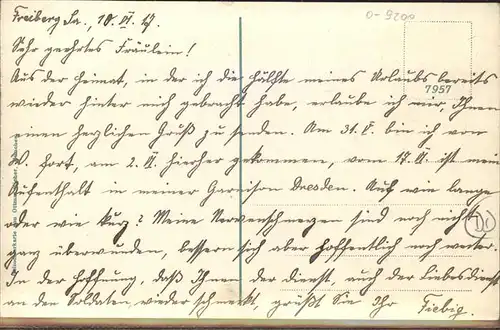 Freiberg Sa., 10. VI. 17.
0-9200
Sehr geehrtes Fräulein!
7957
Aus der Heimat, in der ich die Hälfte meines Urlaubs bereits
wieder hinter mich gebracht habe, erlaube ich mir, Ihnen
einen herzlichen Gruß zu senden. Am 31. V. bin ich vom
W. fort, am 2. VI. hierher gekommen, vom 17. VI. ist mein
Aufenthalt in meiner Garnison Dresden. Auf wie lange
oder wie kurz? Meine Nervenschmerzen sind noch nicht
ganz überwunden, bessern sich aber hoffentlich noch weiter.
In der Hoffnung, daß Ihnen der Dienst, auch der Liebesdienst
an den Soldaten, wieder schmeckt, grüßt Sie Ihr Fiebig.